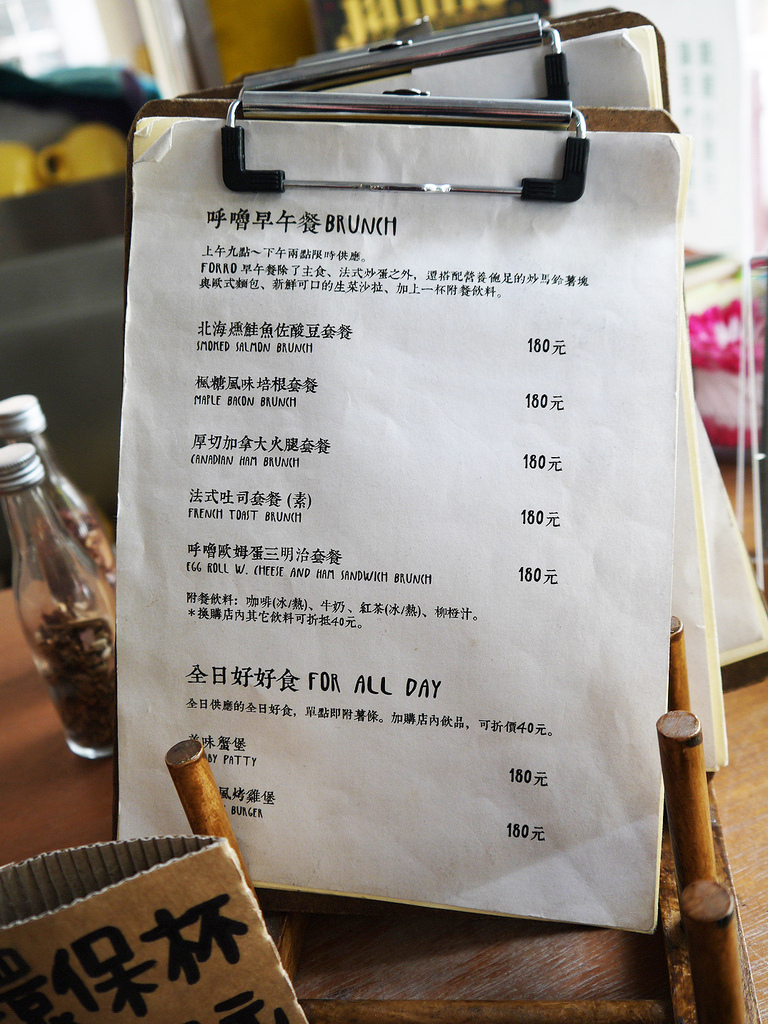 呼嚕早午餐 BRUNCH
上午九點～下午兩點限時供應。
FORRO 早午餐除了主食、法式炒蛋之外，還搭配營養飽足的炒馬鈴薯塊
與歐式麵包、新鮮可口的生菜沙拉、加上一杯附餐飲料。
北海燻鮭魚佐酸豆套餐
SMOKED SALMON BRUNCH 180元
楓糖風味培根套餐
MAPLE BACON BRUNCH 180元
厚切加拿大火腿套餐
CANADIAN HAM BRUNCH 180元
法式吐司套餐 (素)
FRENCH TOAST BRUNCH 180元
呼嚕歐姆蛋三明治套餐
EGG ROLL W. CHEESE AND HAM SANDWICH BRUNCH 180元
附餐飲料: 咖啡(冰/熱)、牛奶、紅茶(冰/熱)、柳橙汁。
＊換購店內其它飲料可折抵40元。
全日好好食 FOR ALL DAY
全日供應的全日好食，單點即附薯條。加購店內飲品，可折價40元。
味蟹堡
BY PATTY 180元
風烤雞堡
BURGER 180元
環保杯
元